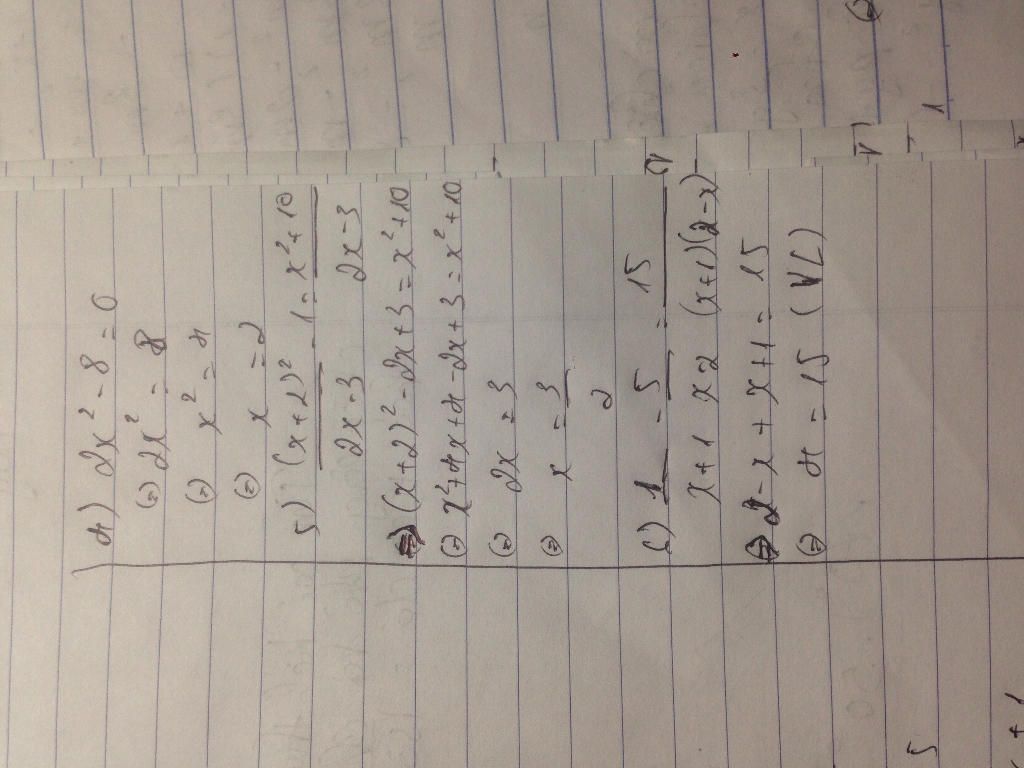 4) 2x² - 8 = 0
(=) 2x² = 8
(=) x² = 4
(=) x = 2
5) (x+2)² / 2x-3 - 1 = x²+10 / 2x-3
(=) (x+2)² - 2x+3 = x²+10
(=) x²+4x+4-2x+3 = x²+10
(=) 2x = 3
(=) x = 3/2
6) 1 / x+1 - 5 / x-2 = 15 / (x+1)(2-x)
(=) 2-x+x+1 = 15
(=) 4 = 15 (VL)